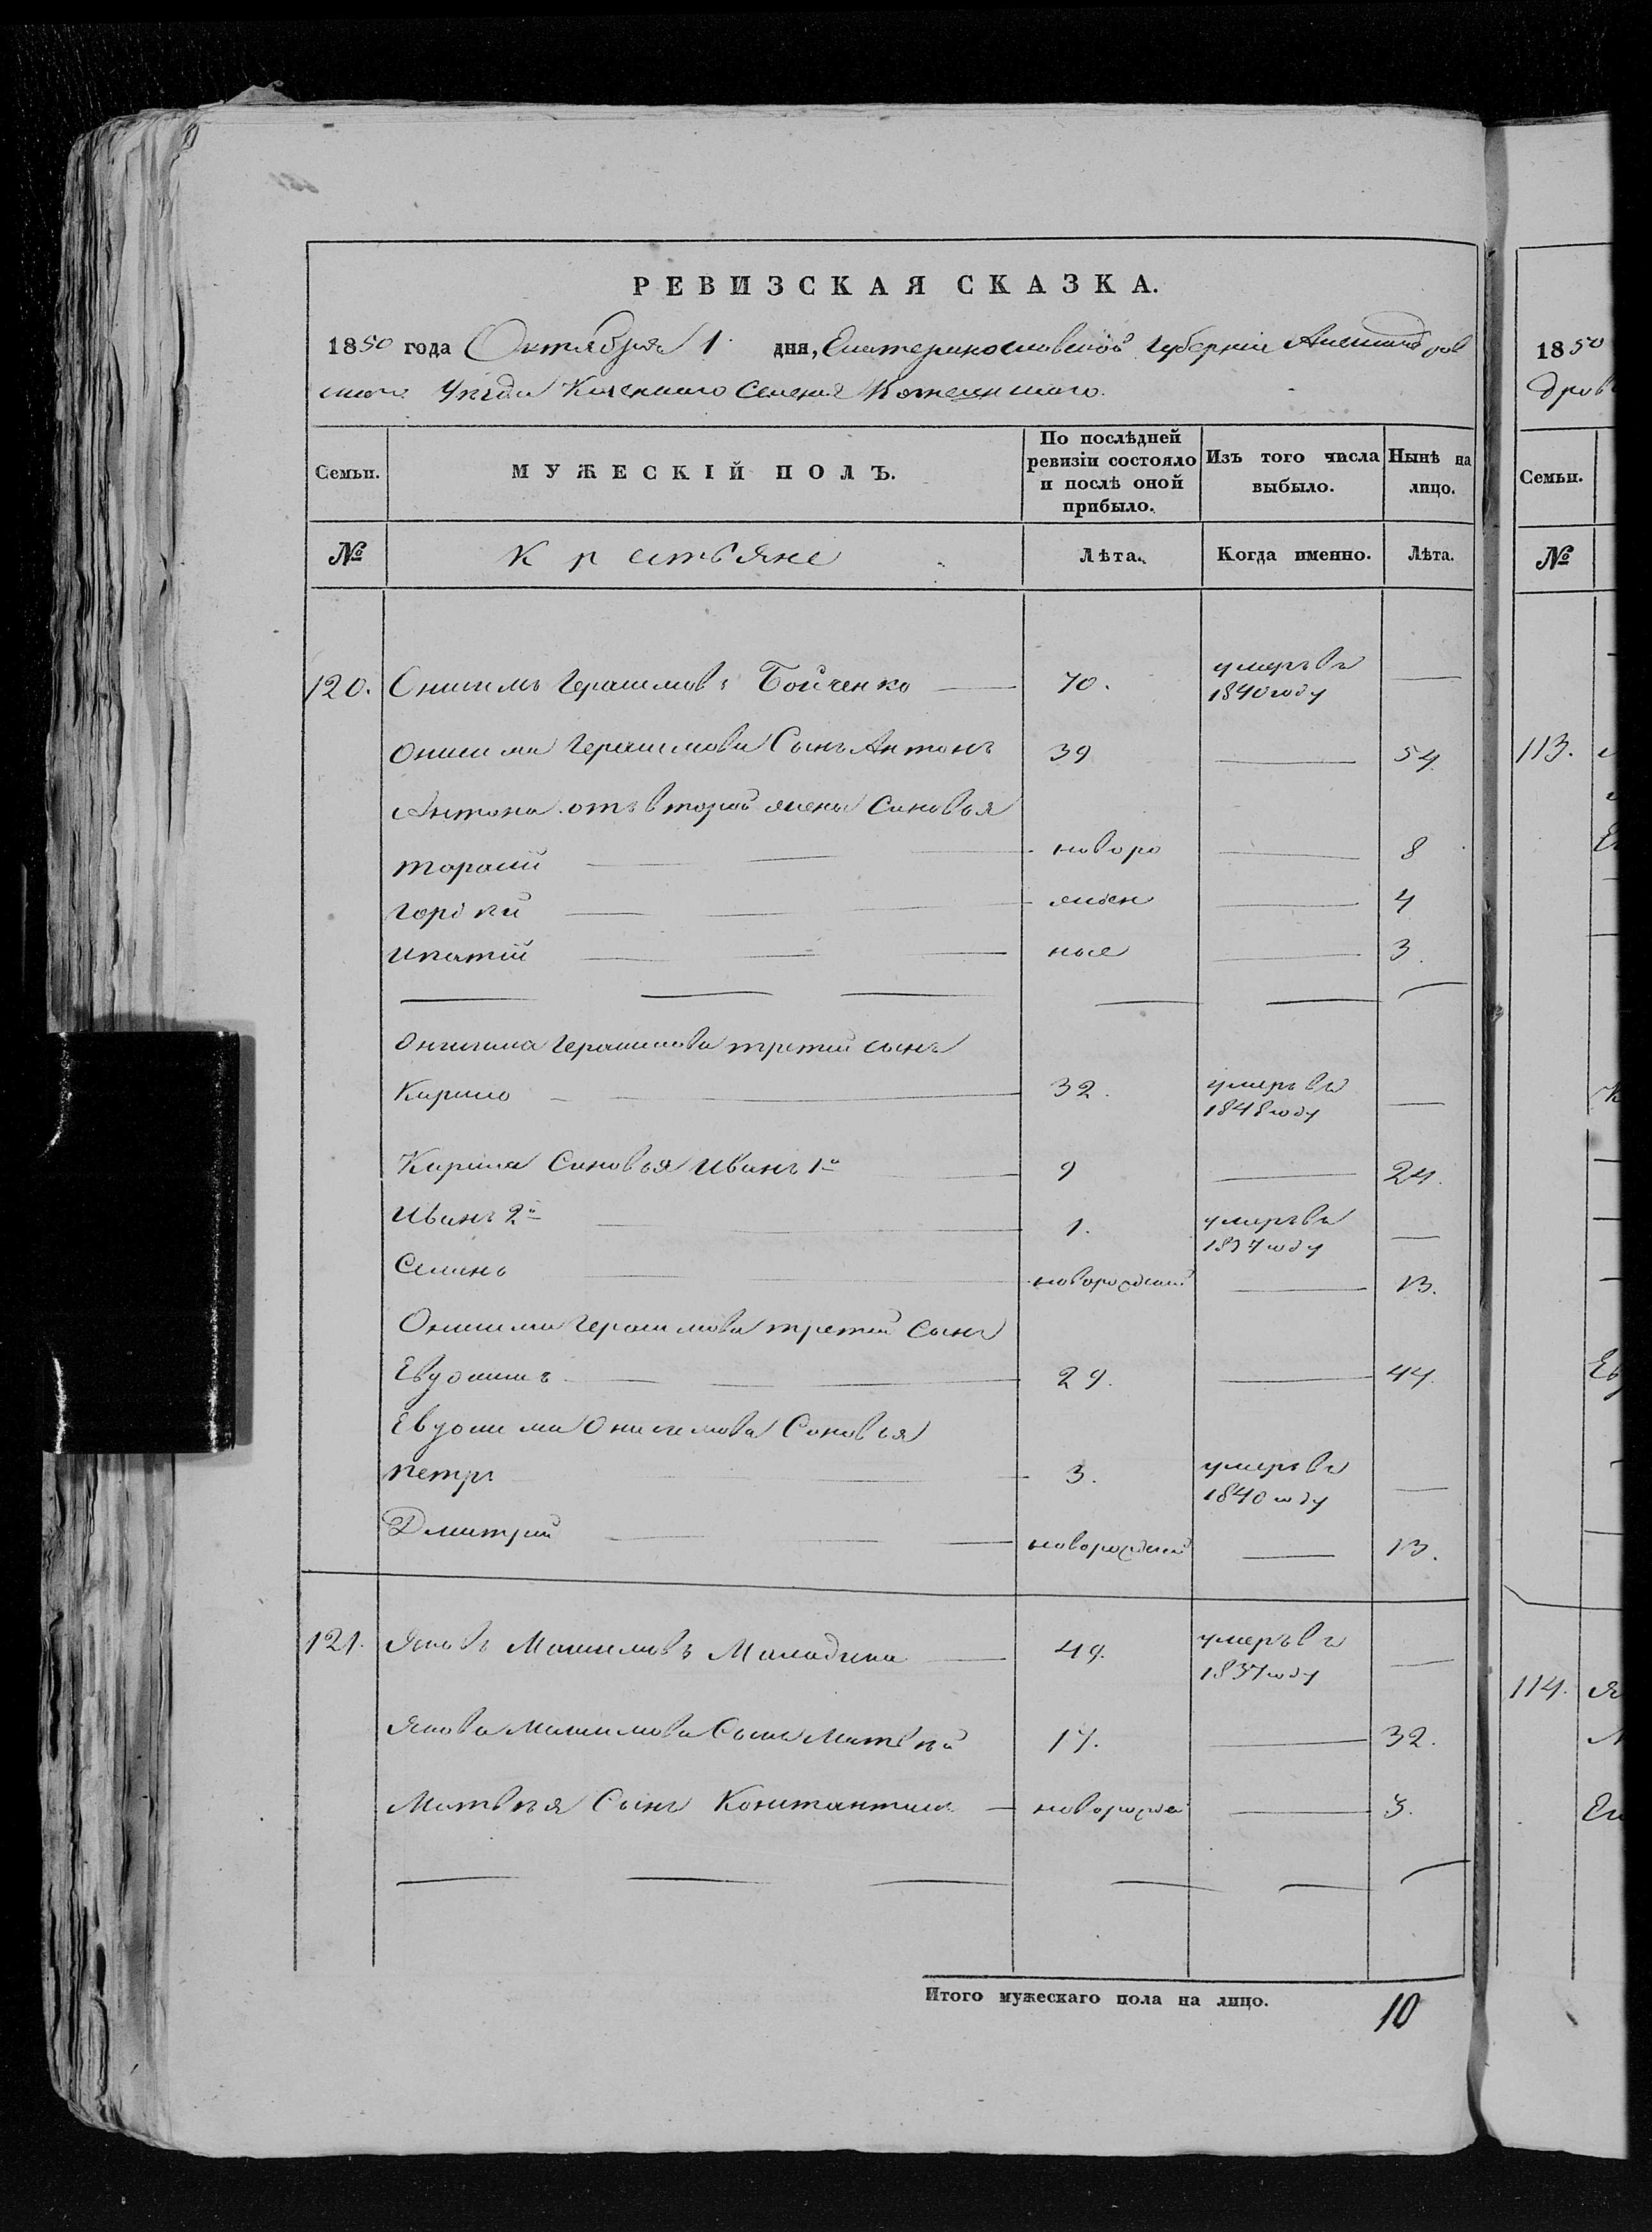 РЕВИЗСКАЯ СКАЗКА.
1850 года Октября 1. дня, Екатеринославской губерніи Александров
скаго Уѣзда Казеннаго Селенія
Семьи. МУЖЕСКІЙ ПОЛЪ. По послѣдней ревизіи состояло и послѣ оной прибыло. Изъ того числа выбыло. Нынѣ на лицо.
№ Крестьяне Лѣта. Когда именно. Лѣта.
120. Онисимъ Герасимовъ Бойченко 70. умеръ въ 1840 году —
Онисима Герасимова Сынъ Антонъ 39 — 54.
Антона отъ второй жены Сыновья
Тарасій новоро — 8
Гордѣй жден — 4
Ипатій ные — 3.
Онисима Герасимова третій сынъ
Кирило 32. умеръ въ 1848 году —
Кирила Сыновья Иванъ 1й 9 — 24.
Иванъ 2й 1. умеръ въ 1837 году —
Семенъ новорожденный — 13.
Онисима Герасимова третій Сынъ
Евдокимъ 29. — 44.
Евдокима Онисимова Сыновья
Петръ 3. умеръ въ 1840 году —
Дмитрій новорожденный — 13.
121. Яковъ Максимовъ 49. умеръ въ 1837 году —
Якова Максимова Сынъ Матвѣй 17. — 32.
Матвѣя Сынъ Константинъ новорожден — 3.
Итого мужескаго пола на лицо. 10
1850
дров
Семьи.
№
113.
114.